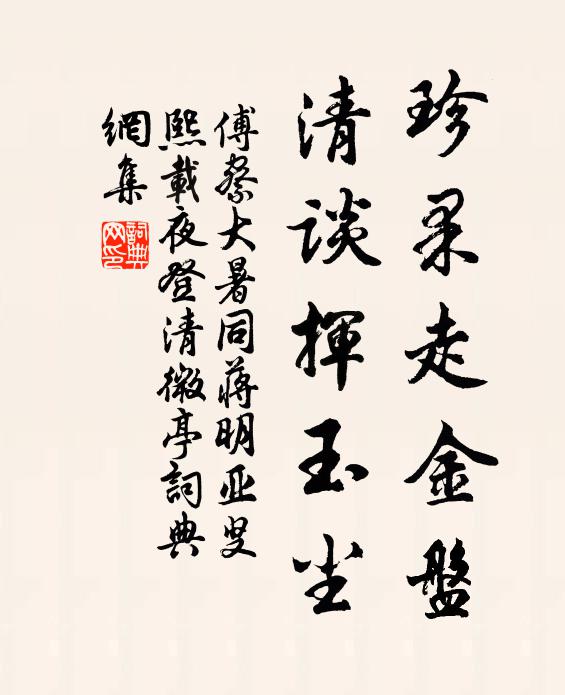 珍果走金盤
清談揮玉尘
傅察大暑同蔣明亚叟
熙載夜登清微亭詞典
網集
詞典
网印